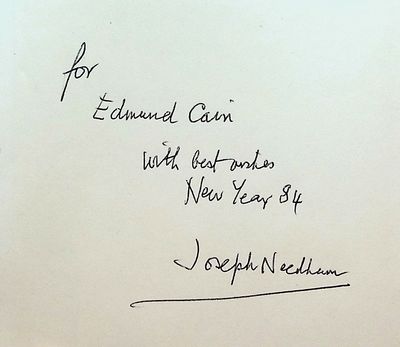 for
Edmund Cain
with best wishes
New Year 84
Joseph Needham